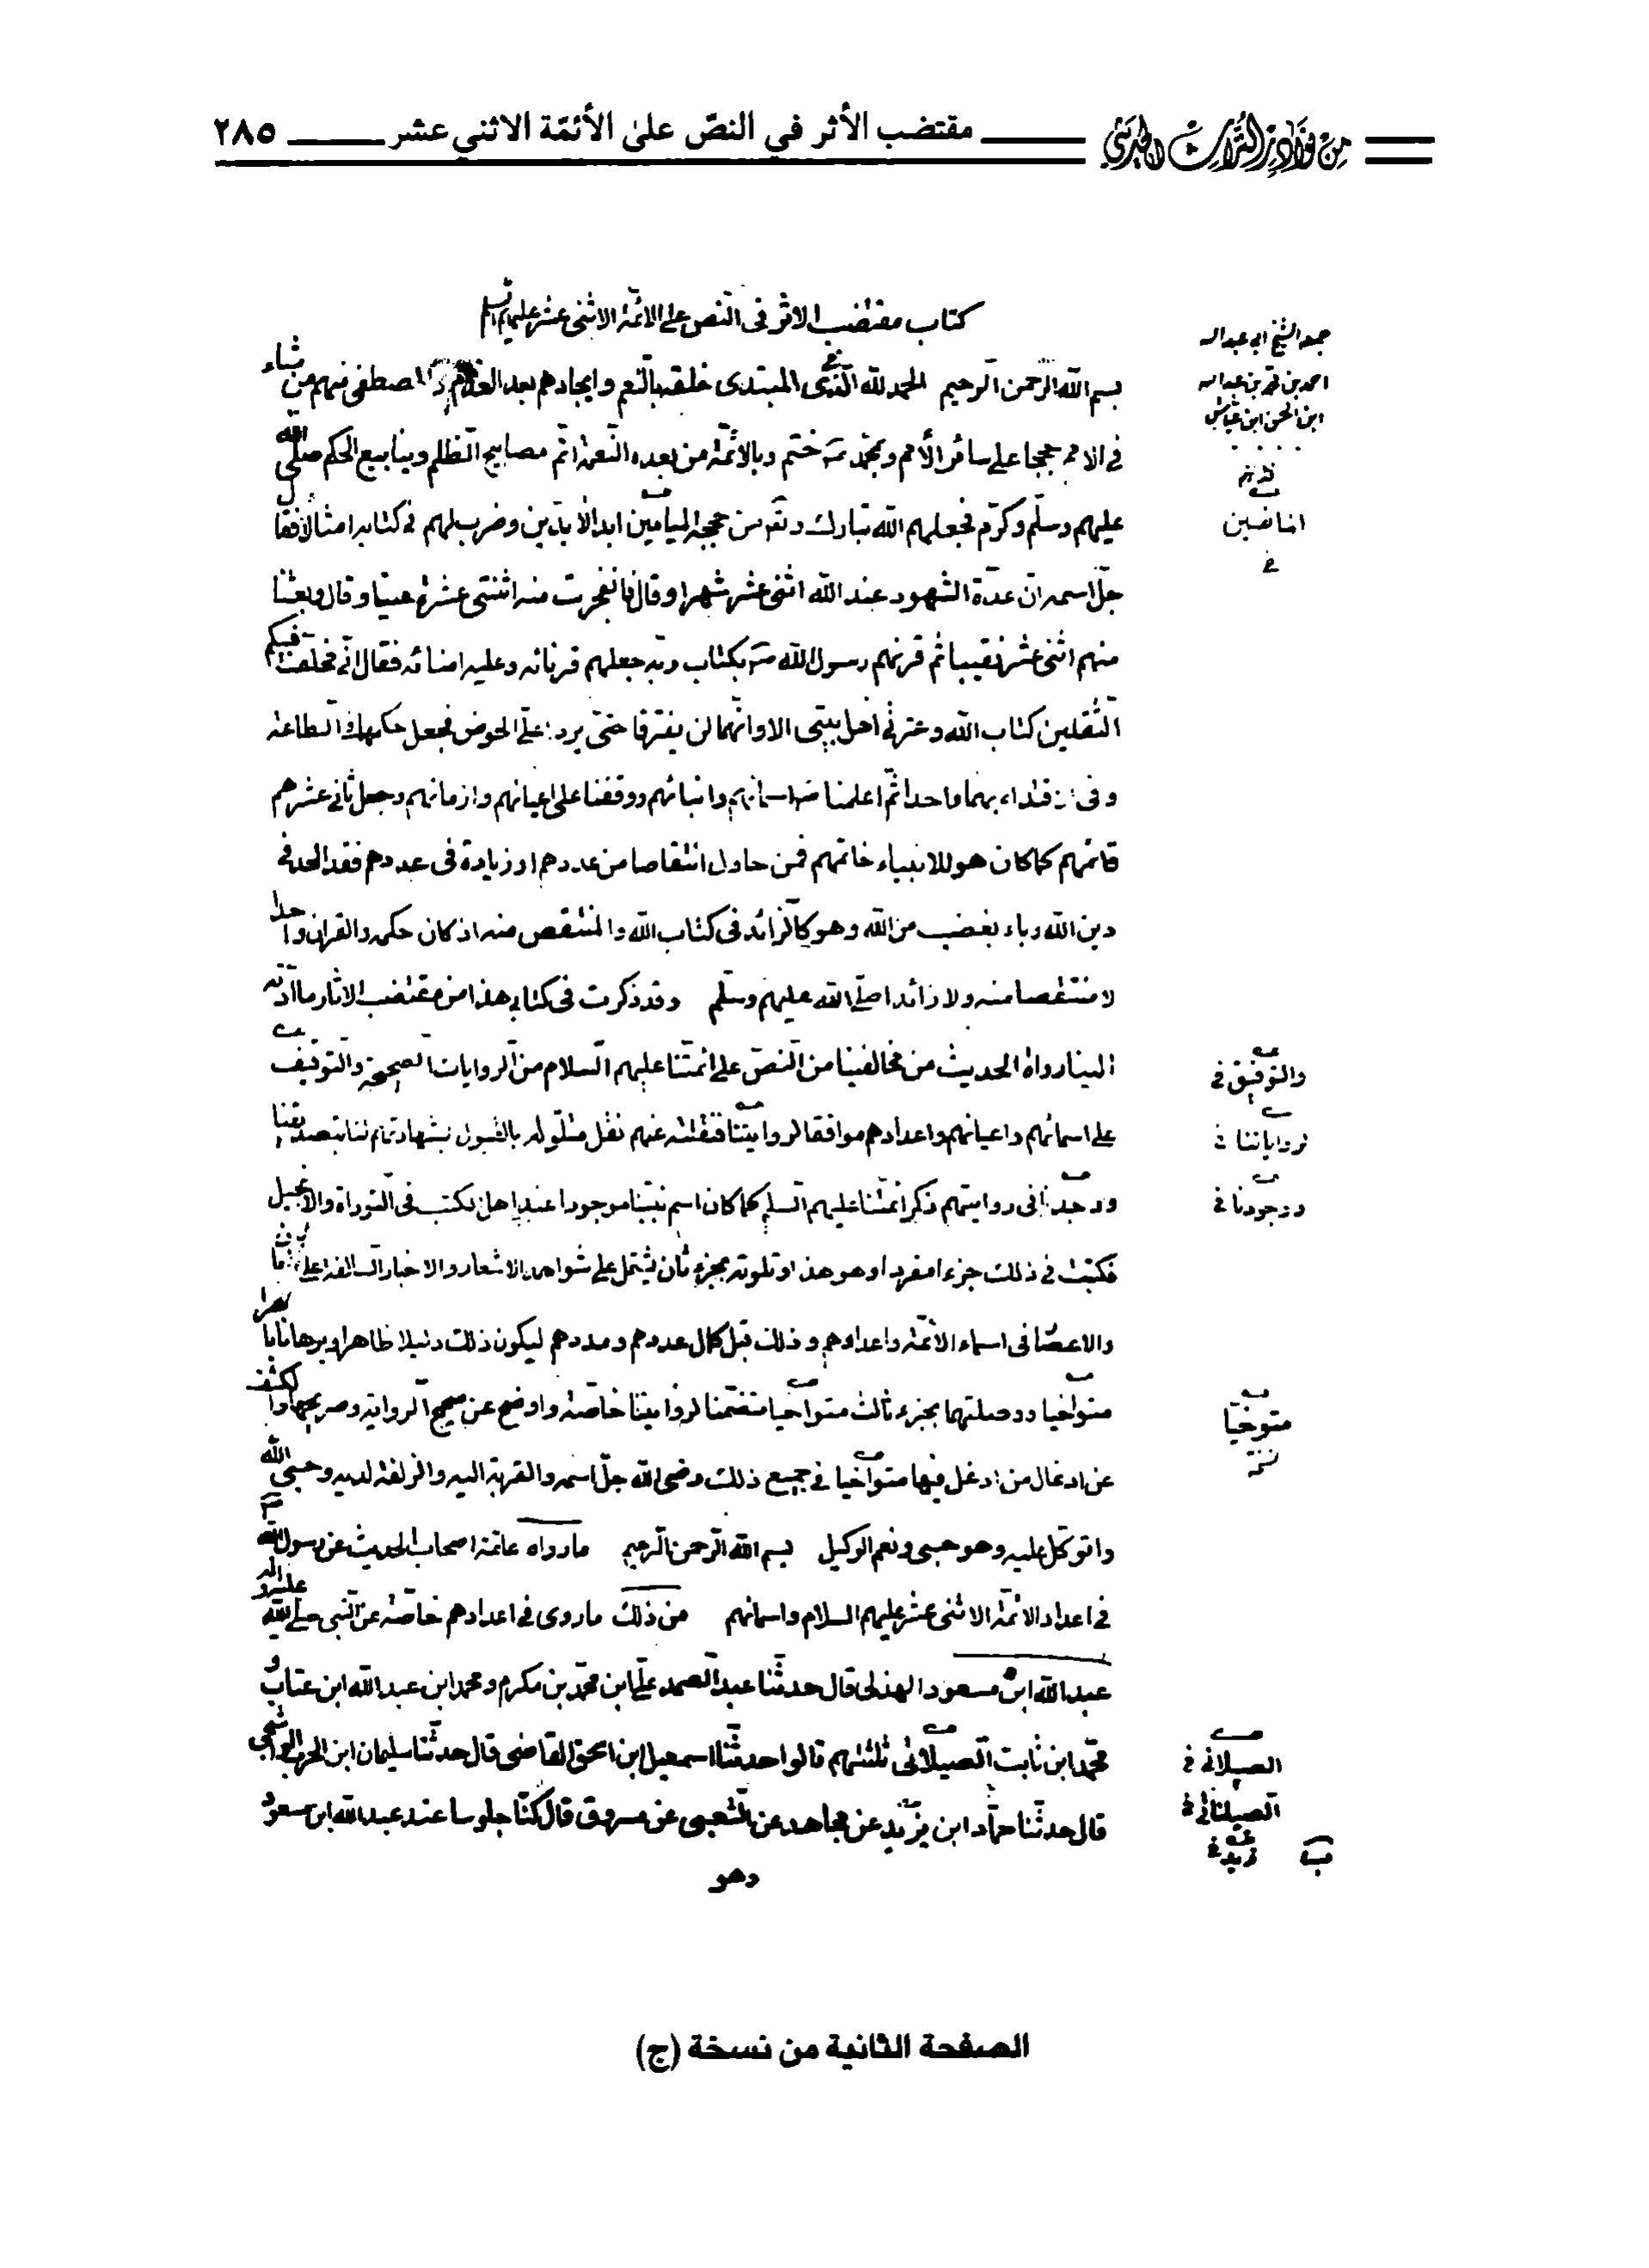 من نوادر التراث الحديثي
مقتضب الأثر في النصّ على الأئمّة الاثني عشر ٢٨٥
كتاب مقتضب الاثر فى النص على الائمة الاثنى عشر عليهم السلم
جمعه الشيخ ابي عبدالله
احمد بن محمد بن عبدالله
ابن الحسن ابن عياش
بسم الله الرحمن الرحيم الحمد لله المبتدى خلقه بالنعم وايجادهم بعد العدم و المصطفى منهم من شاء
فى الامم حججا على سائر الأمم وبمحمد ص ختم وبالائمة من بعده النعمة اتم مصابيح الظلم وينابيع الحكم صلى الله
عليهم وسلم وكرم فجعلهم الله تبارك وتع من حججه الميامين ابد الابدين وضرب لهم فى كتابه امثالا فقال
جل اسمه ان عدة الشهور عند الله اثنى عشر شهرا وقال فانفجرت منه اثنتى عشرة عينا وقال وبعثنا
منهم اثنى عشر نقيبا ثم قرنهم رسول الله ص بكتاب ربه جعلهم قرنائه وعليه امنائه فقال انى مخلف فيكم
الثقلين كتاب الله وعترتى اهل بيتى الا وانهما لن يفترقا حتى يردا على الحوض فجعل حكمها فى الطاعة
وفى قتداء بهما واحدا ثم اعلمنا ص اسمائهم وانبائهم ووقفنا على اعيانهم وازمانهم وجعل ثانى عشرهم
قائمهم كما كان هو للانبياء خاتمهم فمن حاول انتقاصا من عددهم او زيادة فى عددهم فقد الحد فى
دين الله وباء بغضب من الله وهو كالزائد فى كتاب الله والمنتقص منه اذ كان حكمه والقران واحدا
لا منتقصا منه ولا زائدا صلى الله عليهم وسلم وقد ذكرت فى كتابى هذا من مقتضب الاثار ما ادته
الينا رواة الحديث من مخالفينا من النص على ائمتنا عليهم السلام من الروايات الصحيحة والتوقيف
والتوفيق
على اسمائهم واعيانهم واعدادهم موافقا لروايتنا فنقلته عنهم نقل متلو له بالقبول بشهادتهم لنا بتصديقنا
لرواياتنا
ووجدنا فى روايتهم ذكر ائمتنا عليهم السلم كما كان اسم نبينا موجودا عند اهل لكتب فى التوراة والانجيل
ووجودنا
فكتبت فى ذلك جزءا مفردا وهو هذا وتلوته بجزء ثان يشتمل على شواهد الاشعار والاخبار السالفة على
والاعصا فى اسماء الائمة واعدادهم وذلك قبل كمال عددهم ومددهم ليكون ذلك دليلا ظاهرا وبرهانا
متواخيا ووصلتهما بجزء ثالث متواخيا متضمنا لروايتنا خاصة واوضح عن صحيح الرواية وصريحها واكشف
متوخيا
نسخة
عن ادغال من ادغل فيها متواخيا فى جميع ذلك رضى الله جل اسمه والقربة اليه والزلفة لديه وحسبى الله
واتوكل عليه وهو حسبى ونعم الوكيل بسم الله الرحمن الرحيم ما رواه عامة اصحاب الحديث عن رسول الله ص
فى اعداد الائمة الاثنى عشر عليهم السلام واسمائهم من ذلك ما روى فى اعدادهم خاصة عن النبى صلى الله عليه واله
عبد الله ابن مسعود الهذلى قال حدثنا عبد الصمد على ابن محمد بن مكرم ومحمد ابن عبد الله ابن عتاب و
محمد ابن ثابت الصيلانى ثلثتهم قالوا حدثنا اسمعيل ابن اسحق القاضى قال حدثنا سليمان ابن الحرب الواشحى
الصيلانى
قال حدثنا حماد ابن يزيد عن مجاهد عن الشعبى عن مسروق قال كنا جلوسا عند عبد الله ابن مسعود
زيد
وهو
الصفحة الثانية من نسخة (ج)